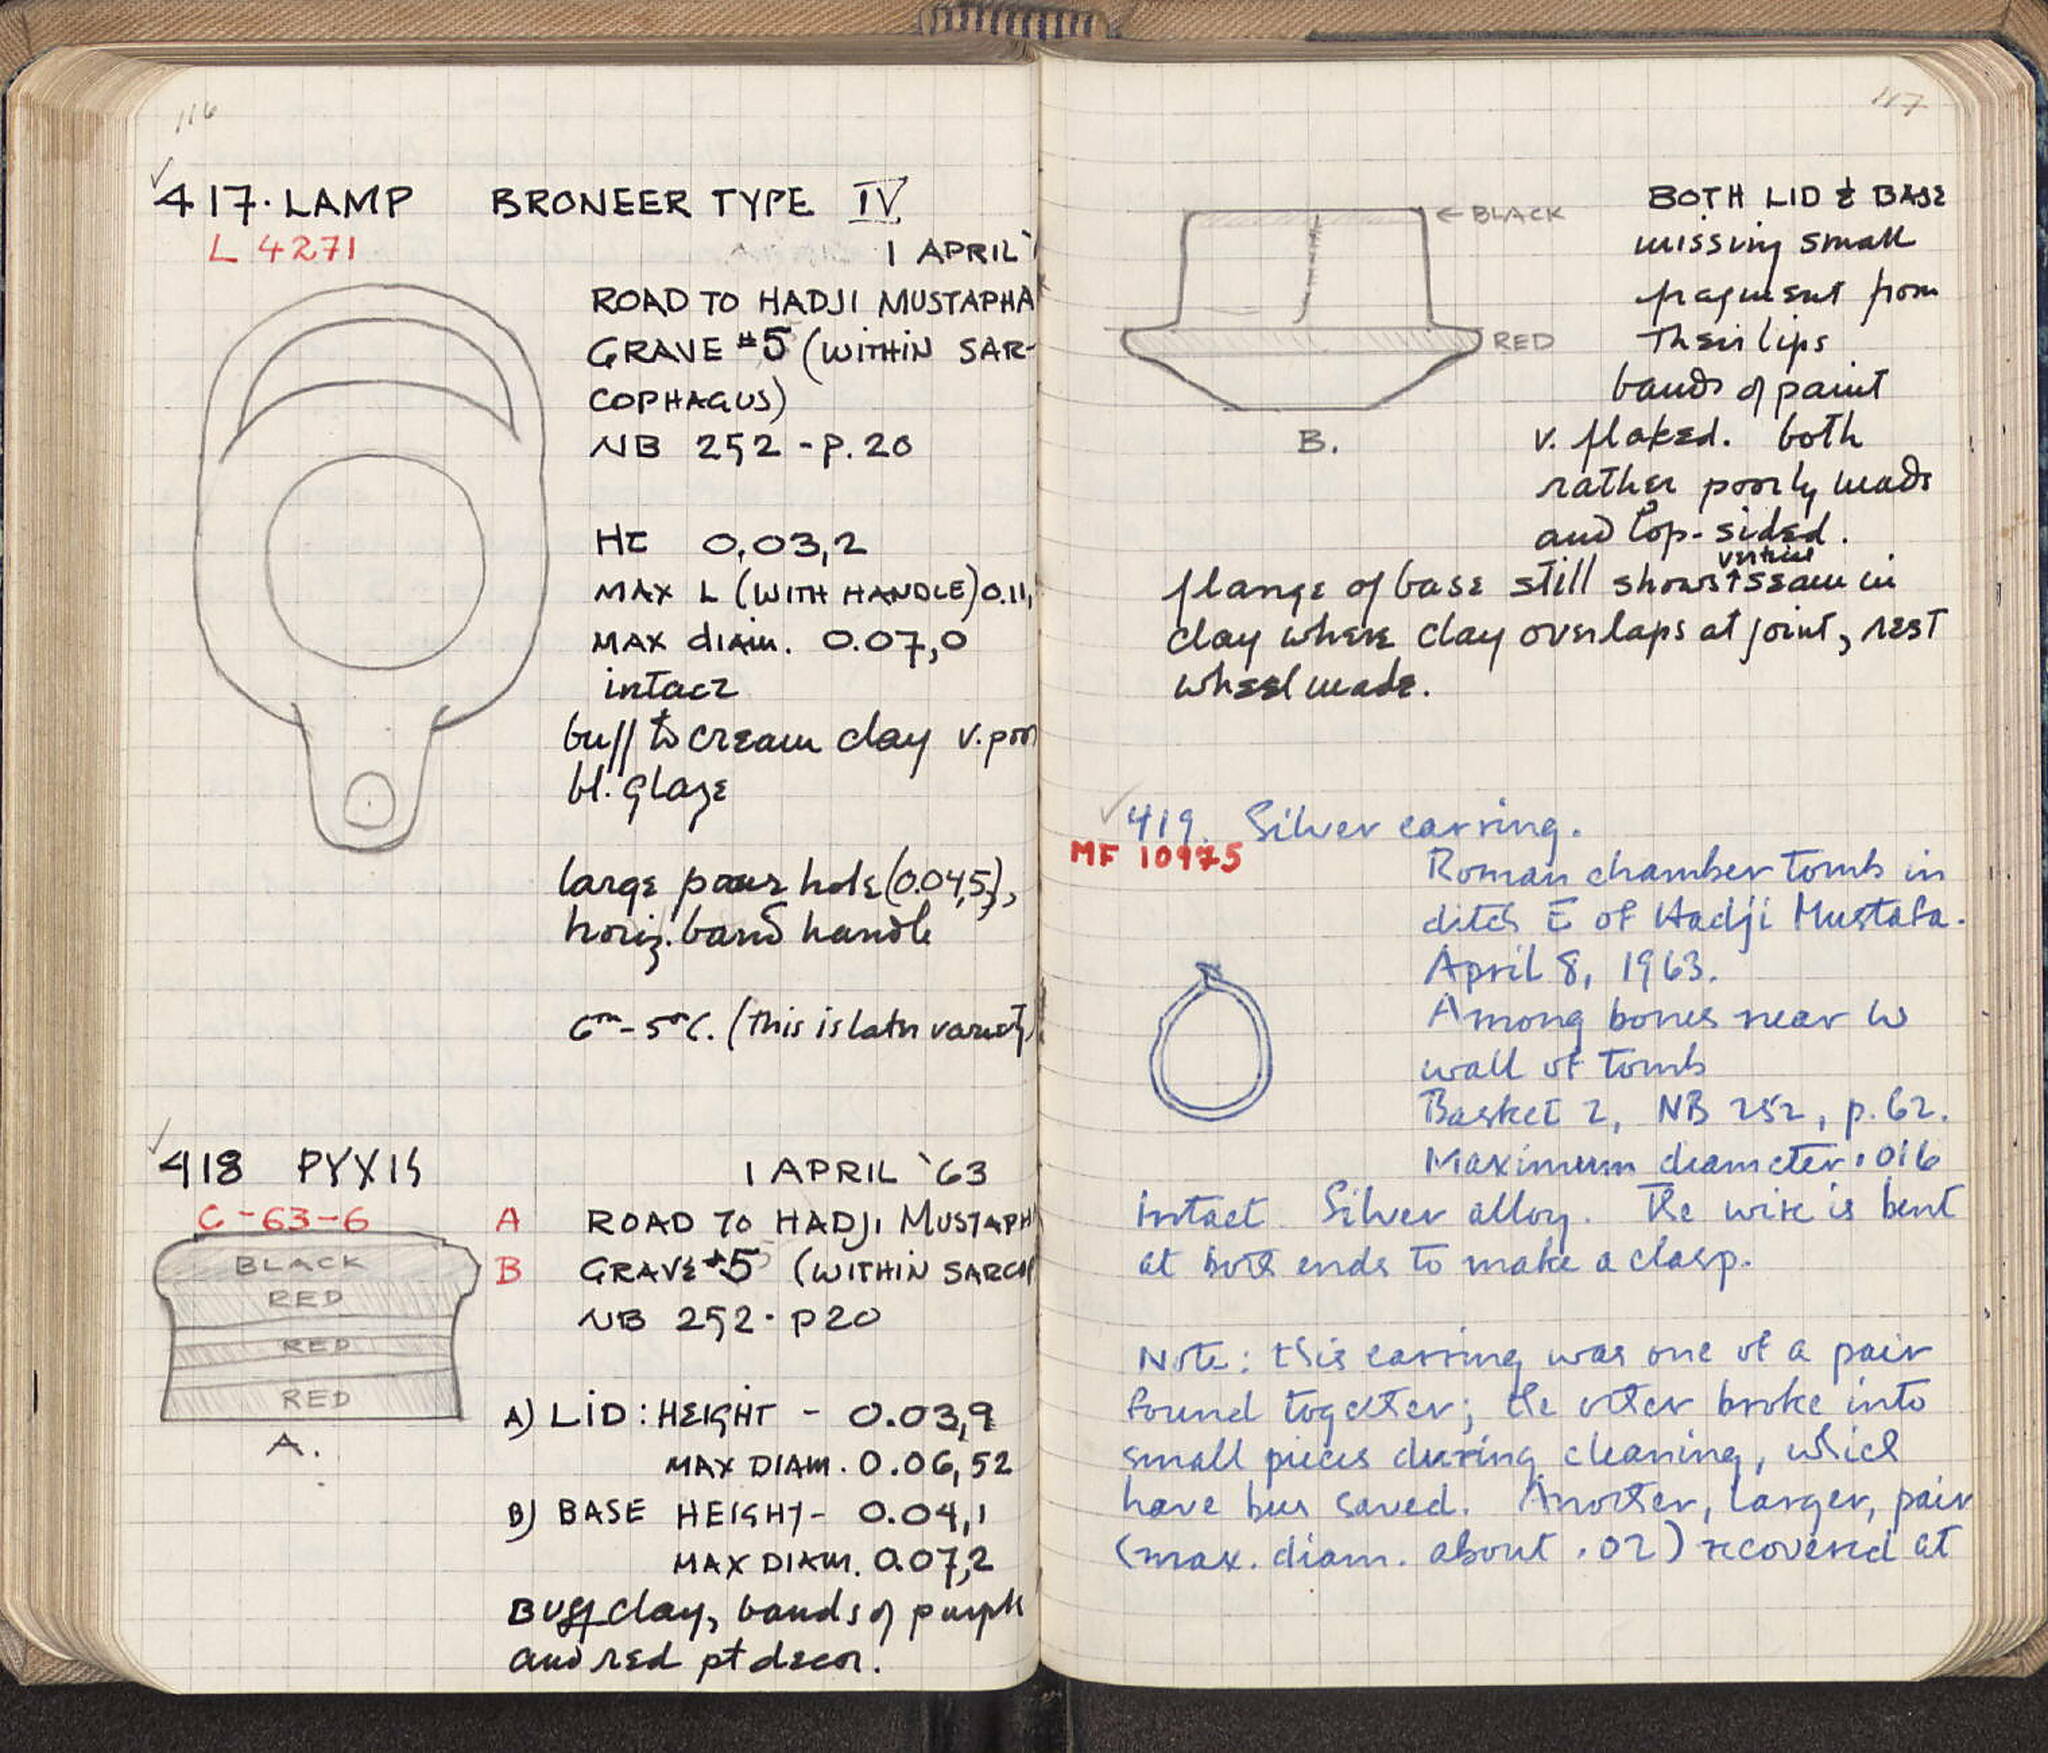 116
417. LAMP BRONEER TYPE IV
L 4271
1 APRIL '
ROAD TO HADJI MUSTAPHA
GRAVE #5 (WITHIN SAR-
COPHAGUS)
NB 252 - P. 20
HT 0,03,2
MAX L (WITH HANDLE) 0.11,
MAX diam. 0.07,0
intact
buff to cream clay v. poor
bl. glaze
large pour hole (0.04,5),
horiz. band handle
6th - 5th C. (this is later variety)
418 PYXIS 1 APRIL '63
C-63-6 A ROAD TO HADJI MUSTAPH
B GRAVE #5 (WITHIN SARCOP
NB 252 - P 20
BLACK
RED
RED
RED
A.
A) LID: HEIGHT - 0.03,9
MAX DIAM. 0.06,52
B) BASE HEIGHT - 0.04,1
MAX DIAM. 0.07,2
Buff clay, bands of purple
and red pt decor.
117
← BLACK
RED
B.
BOTH LID & BASE
missing small
fragment from
their lips
bands of paint
v. flaked. both
rather poorly made
and lop-sided.
flange of base still shows ↑ vertical seam in
clay where clay overlaps at joint, rest
wheelmade.
419. Silver earring.
MF 10975
Roman chamber tomb in
ditch E of Hadji Mustafa.
April 8, 1963.
Among bones near W
wall of tomb
Basket 2, NB 252, p. 62.
Maximum diameter .016
Intact. Silver alloy. The wire is bent
at both ends to make a clasp.
Note: this earring was one of a pair
found together; the other broke into
small pieces during cleaning, which
have been saved. Another, larger, pair
(max. diam. about .02) recovered at